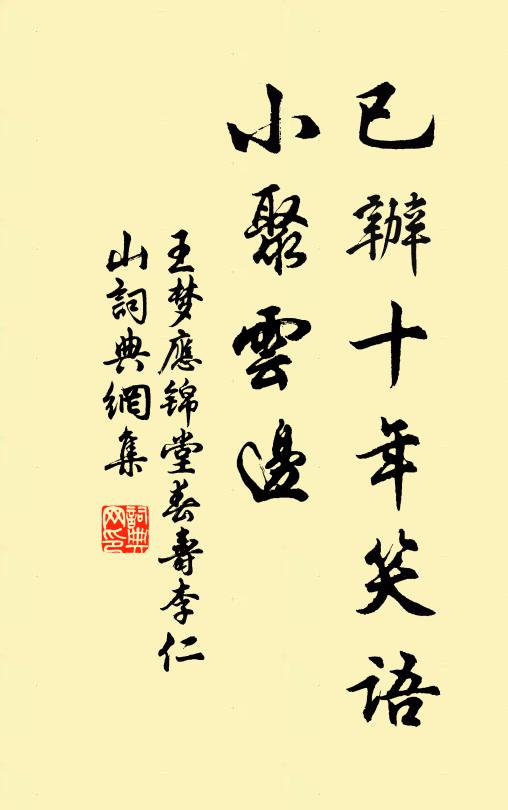 已辦十年笑語
小聚雲邊
王梦應锦堂春壽李仁
山詞典網集
詞典
网印